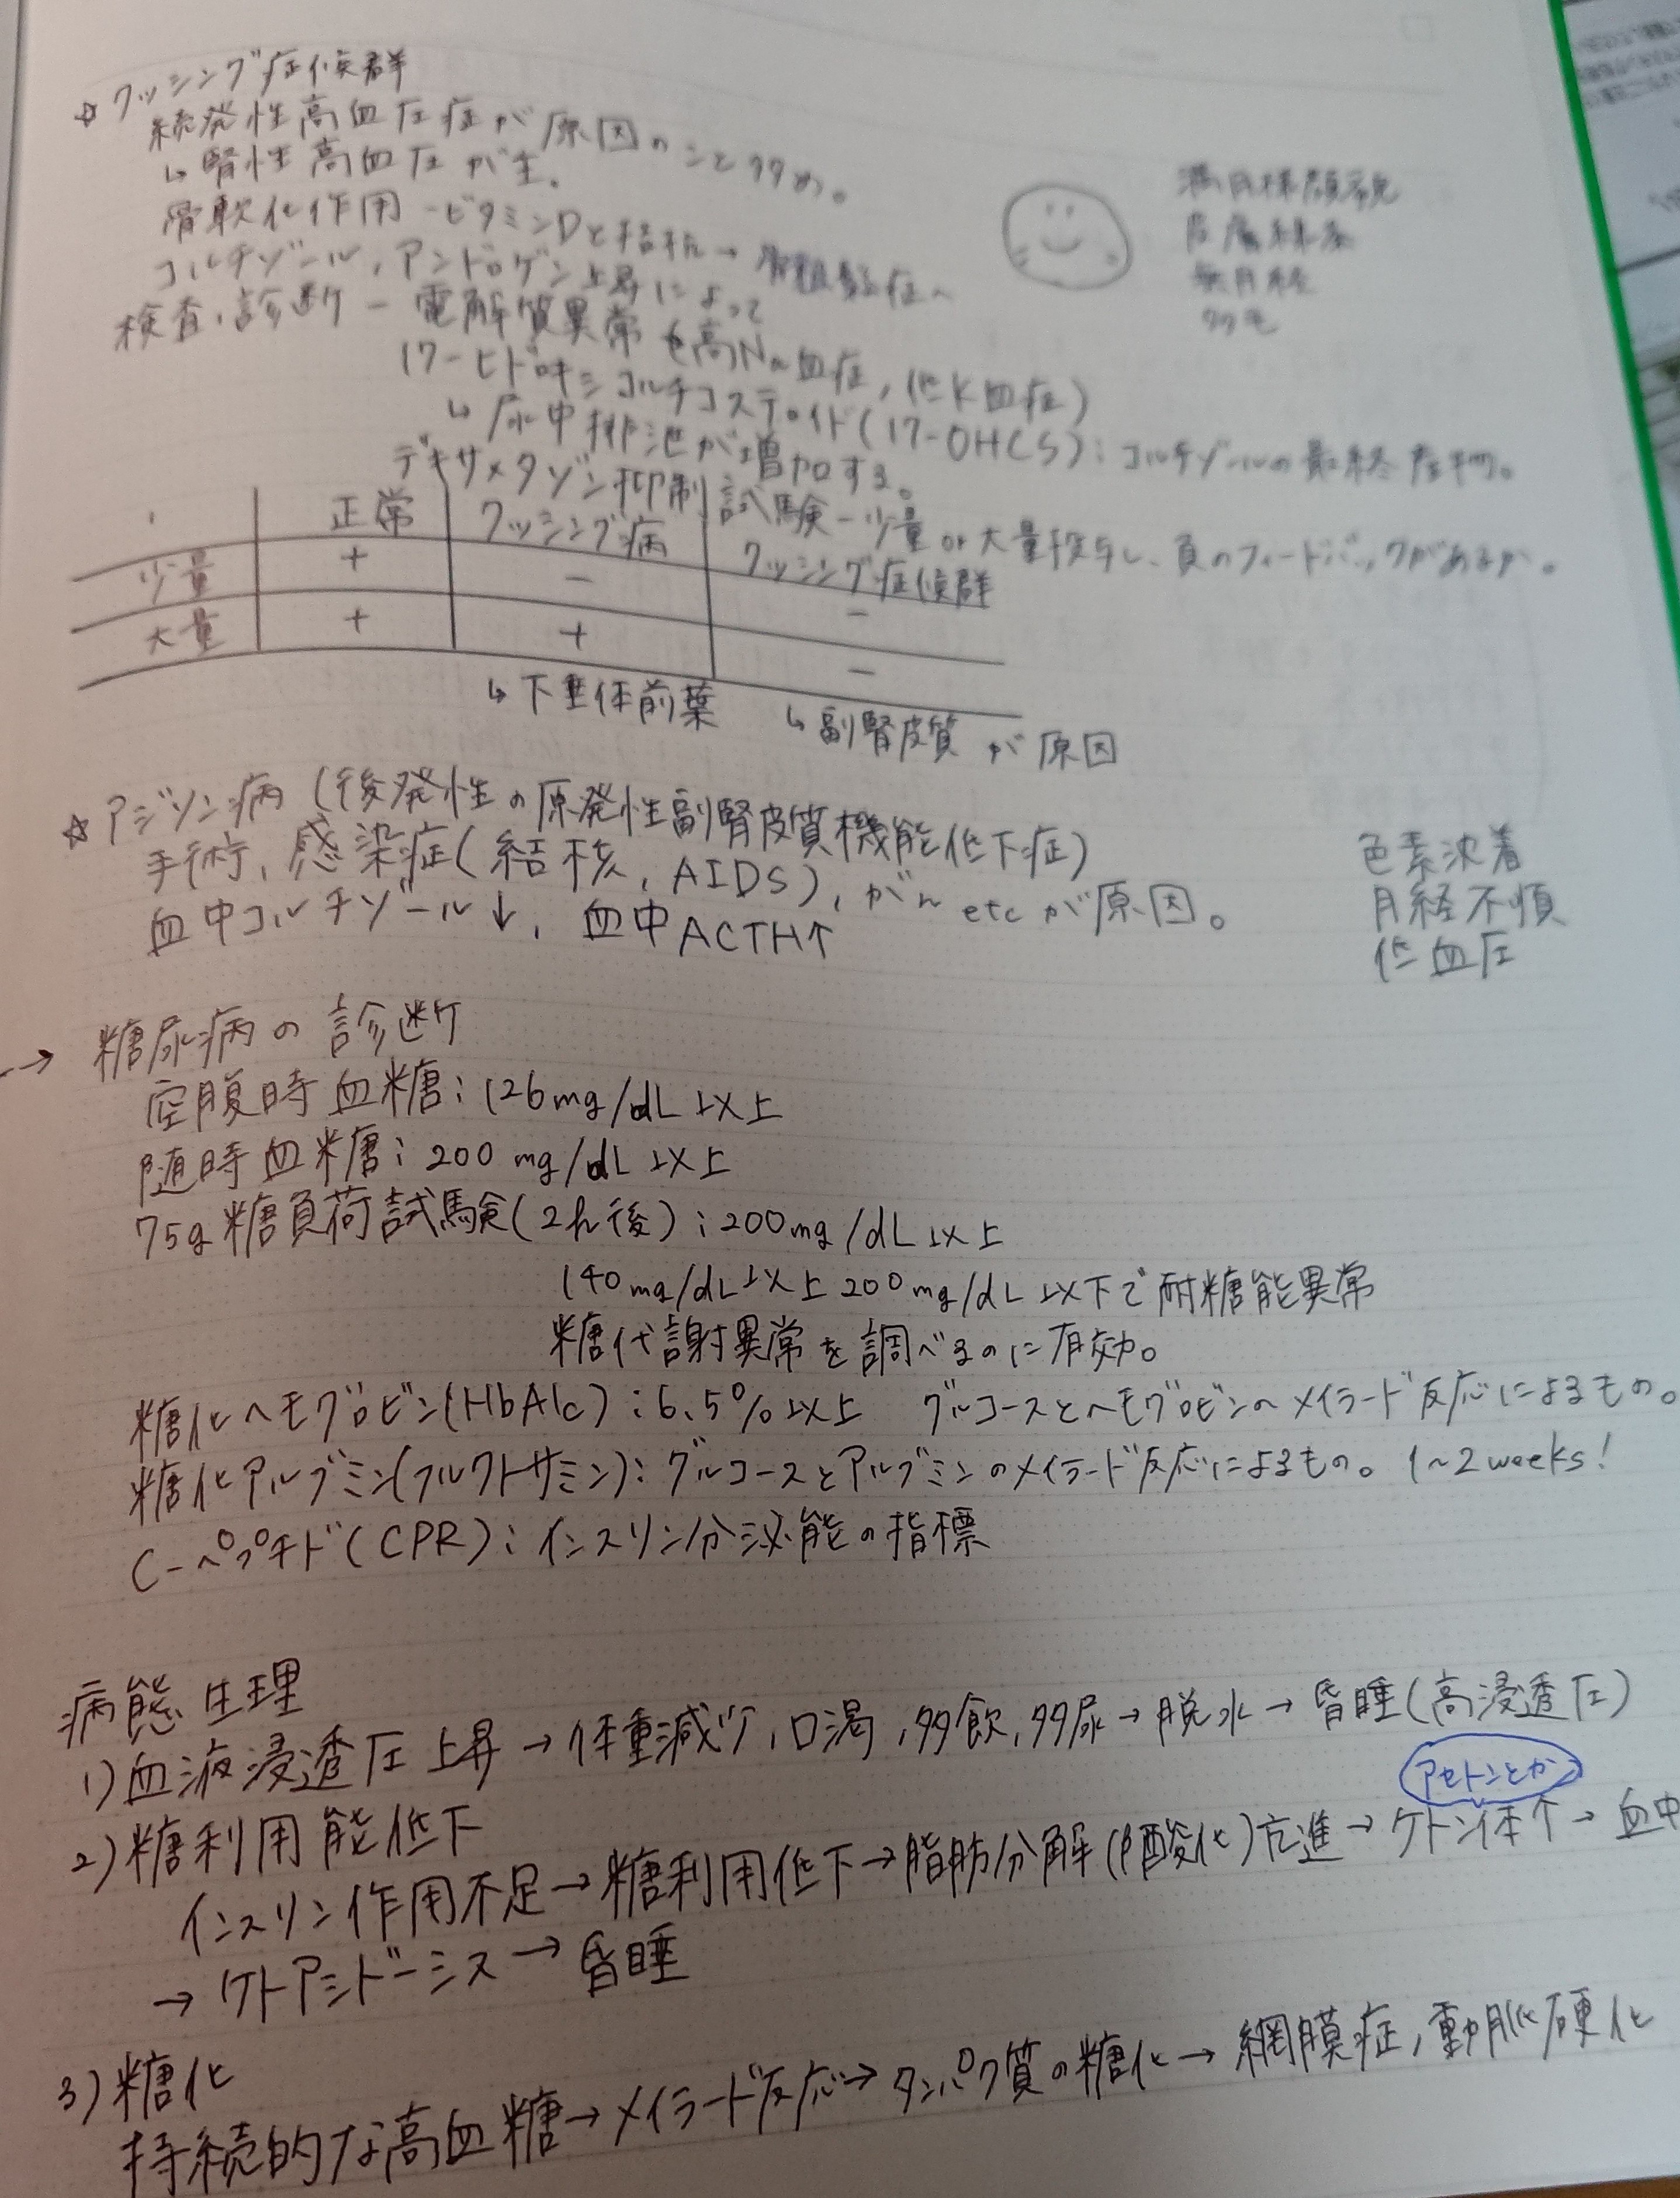 ☆ クッシング症候群
続発性高血圧症が原因のこと多め。
↳ 腎性高血圧が主。
骨軟化作用 - ビタミンDと拮抗 → 骨粗鬆症へ
コルチゾール, アンドロゲン上昇によって
満月様顔貌
皮膚線条
無月経
多毛
検査・診断 - 電解質異常 (高Na血症, 低K血症)
17-ヒドロキシコルチコステロイド (17-OHCS) : コルチゾールの最終産物。
↳ 尿中排泄が増加する。
デキサメタゾン抑制試験 - 少量 or 大量投与し、負のフィードバックがあるか。
正常 クッシング病 クッシング症候群
少量 + - -
大量 + + -
↳ 下垂体前葉 ↳ 副腎皮質 が原因
☆ アジソン病 (後発性の原発性副腎皮質機能低下症)
手術, 感染症 (結核, AIDS), がん etc が原因。
血中コルチゾール↓, 血中ACTH↑
色素沈着
月経不順
低血圧
→ 糖尿病の診断
空腹時血糖 : 126mg/dL以上
随時血糖 : 200 mg/dL以上
75g 糖負荷試験 (2h後) : 200mg/dL以上
140mg/dL以上 200mg/dL以下で耐糖能異常
糖代謝異常を調べるのに有効。
糖化ヘモグロビン (HbA1c) : 6.5%以上 グルコースとヘモグロビンのメイラード反応によるもの。
糖化アルブミン (フルクトサミン) : グルコースとアルブミンのメイラード反応によるもの。 1~2weeks!
C-ペプチド (CPR) : インスリン分泌能の指標
病態生理
1) 血液浸透圧上昇 → 体重減少, 口渇, 多飲, 多尿 → 脱水 → 昏睡 (高浸透圧)
アセトンとか
2) 糖利用能低下
インスリン作用不足 → 糖利用低下 → 脂肪分解 (β酸化) 亢進 → ケトン体↑ → 血中
→ ケトアシドーシス → 昏睡
3) 糖化
持続的な高血糖 → メイラード反応 → タンパク質の糖化 → 網膜症, 動脈硬化